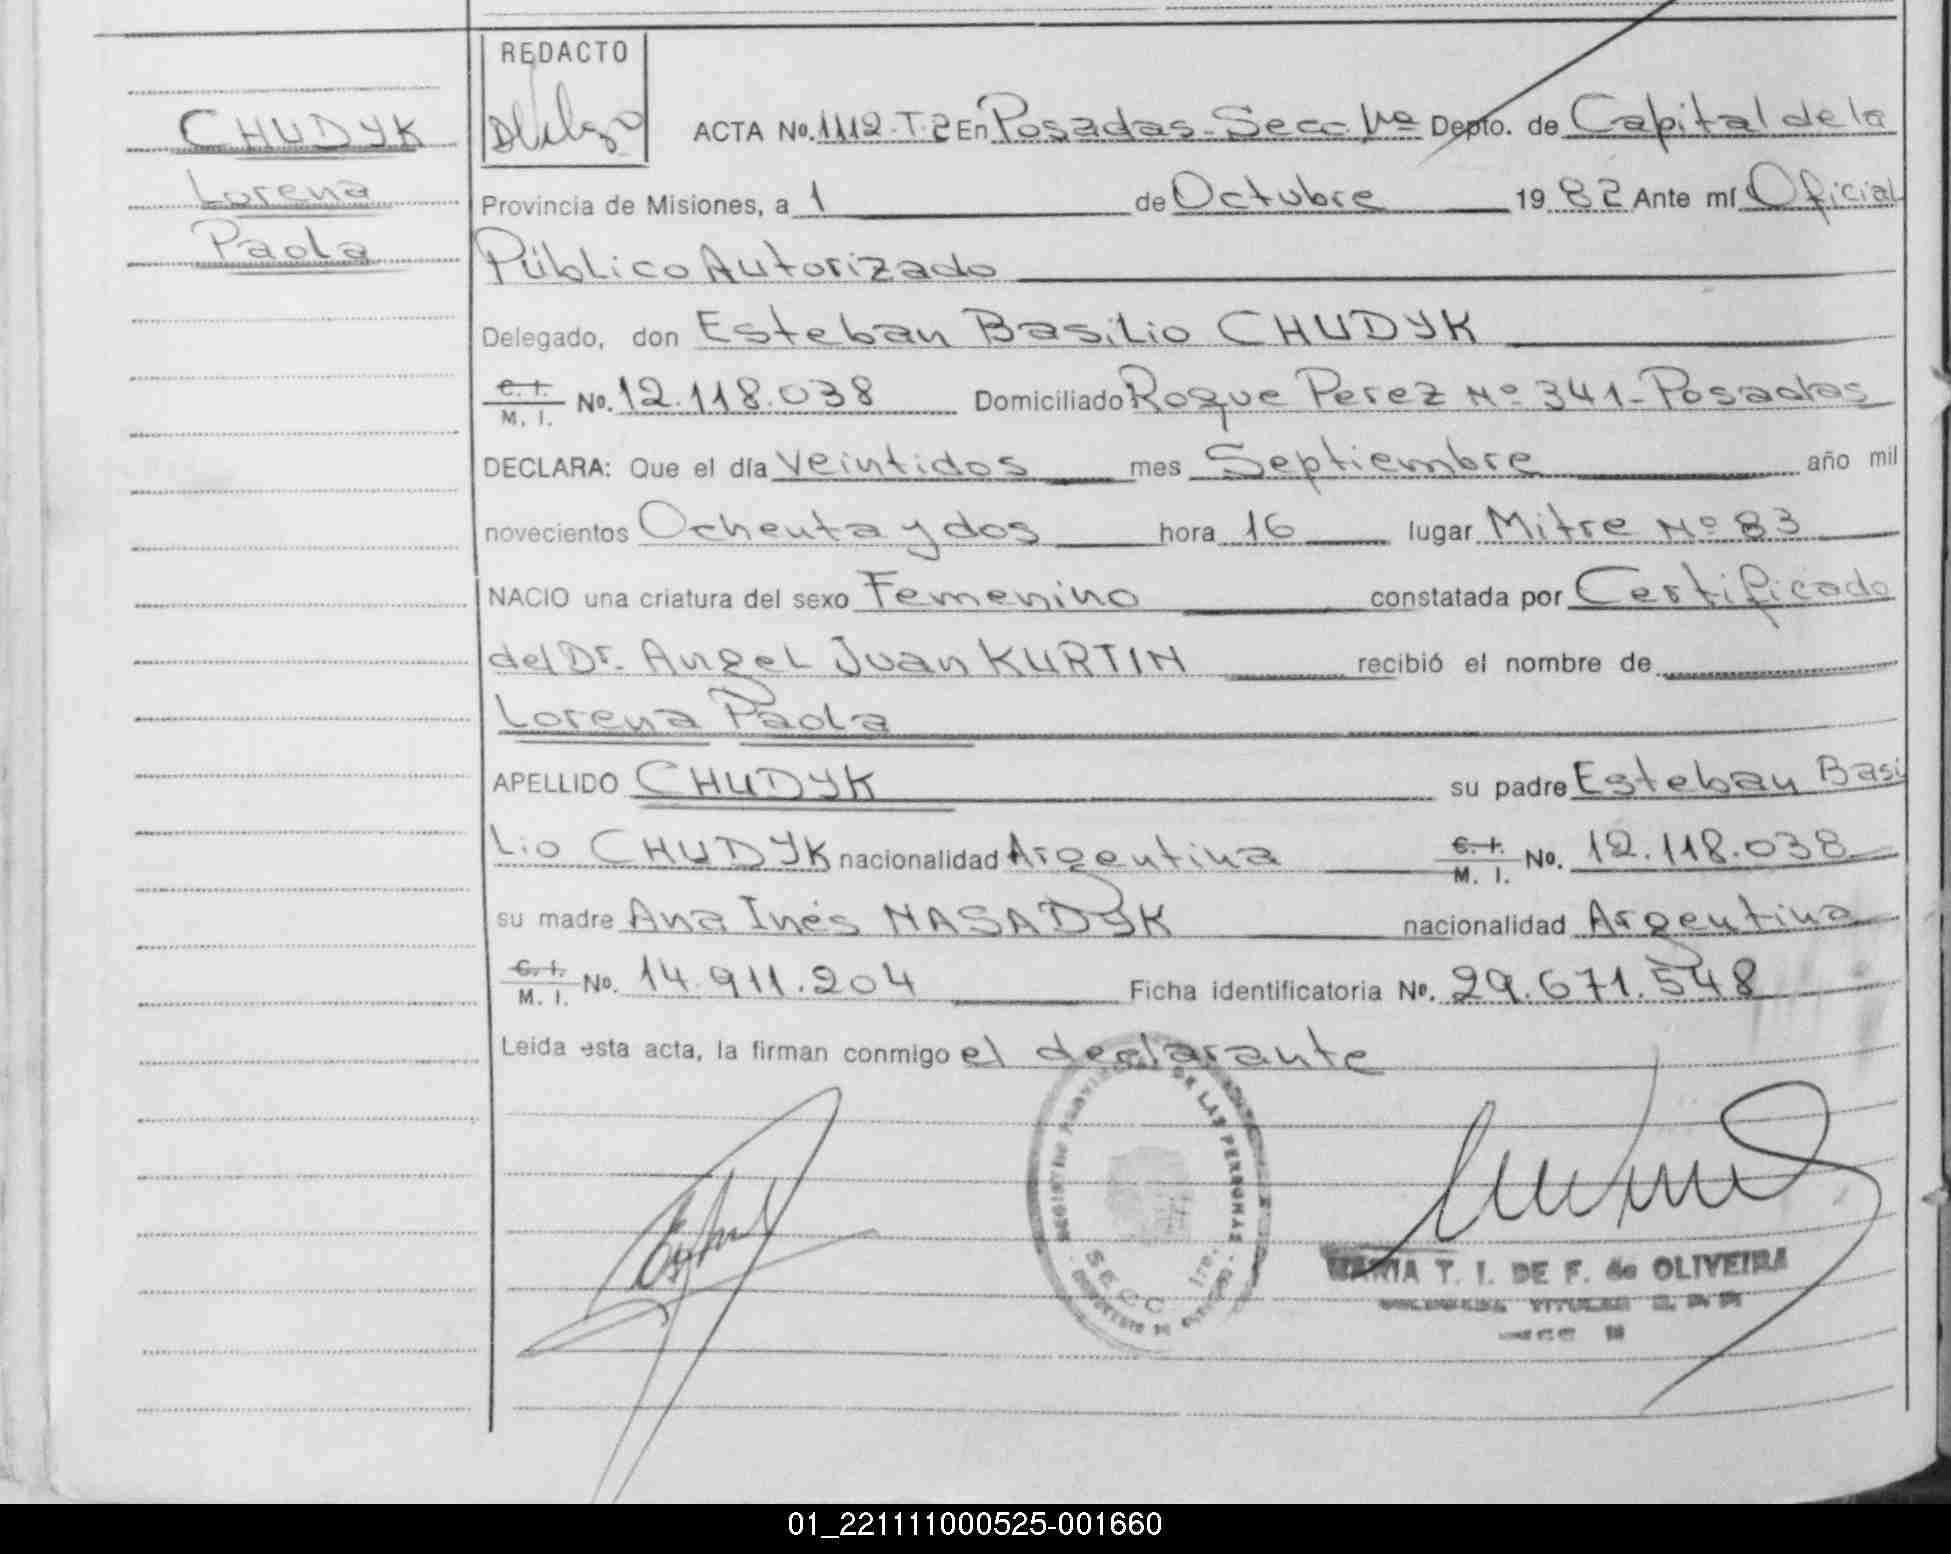 REDACTO
CHUDYK
Lorena
Paola
ACTA No. 1112-T-2 En Posadas-Secc 1ra Depto. de Capital de la
Provincia de Misiones, a 1 de Octubre 1982 Ante mí Oficial
Público Autorizado
Delegado, don Esteban Basilio CHUDYK
C. I.
M. I. No. 12.118.038 Domiciliado Roque Perez Nº 341-Posadas
DECLARA: Que el día veintidos mes Septiembre año mil
novecientos Ochenta y dos hora 16 lugar Mitre Nº 83
NACIO una criatura del sexo Femenino constatada por Certificado
del Dr. Angel Juan KURTIN recibió el nombre de
Lorena Paola
APELLIDO CHUDYK su padre Esteban Basi
lio CHUDYK nacionalidad Argentina C. I. M. I. No. 12.118.038
su madre Ana Inés NASADYK nacionalidad Argentina
C. I.
M. I. No. 14.911.204 Ficha identificatoria No. 29.671.548
Leida esta acta, la firman conmigo el declarante
DE LAS PERSONAS
SECC 1ra.
MARIA T. I. DE F. de OLIVEIRA
01_221111000525-001660